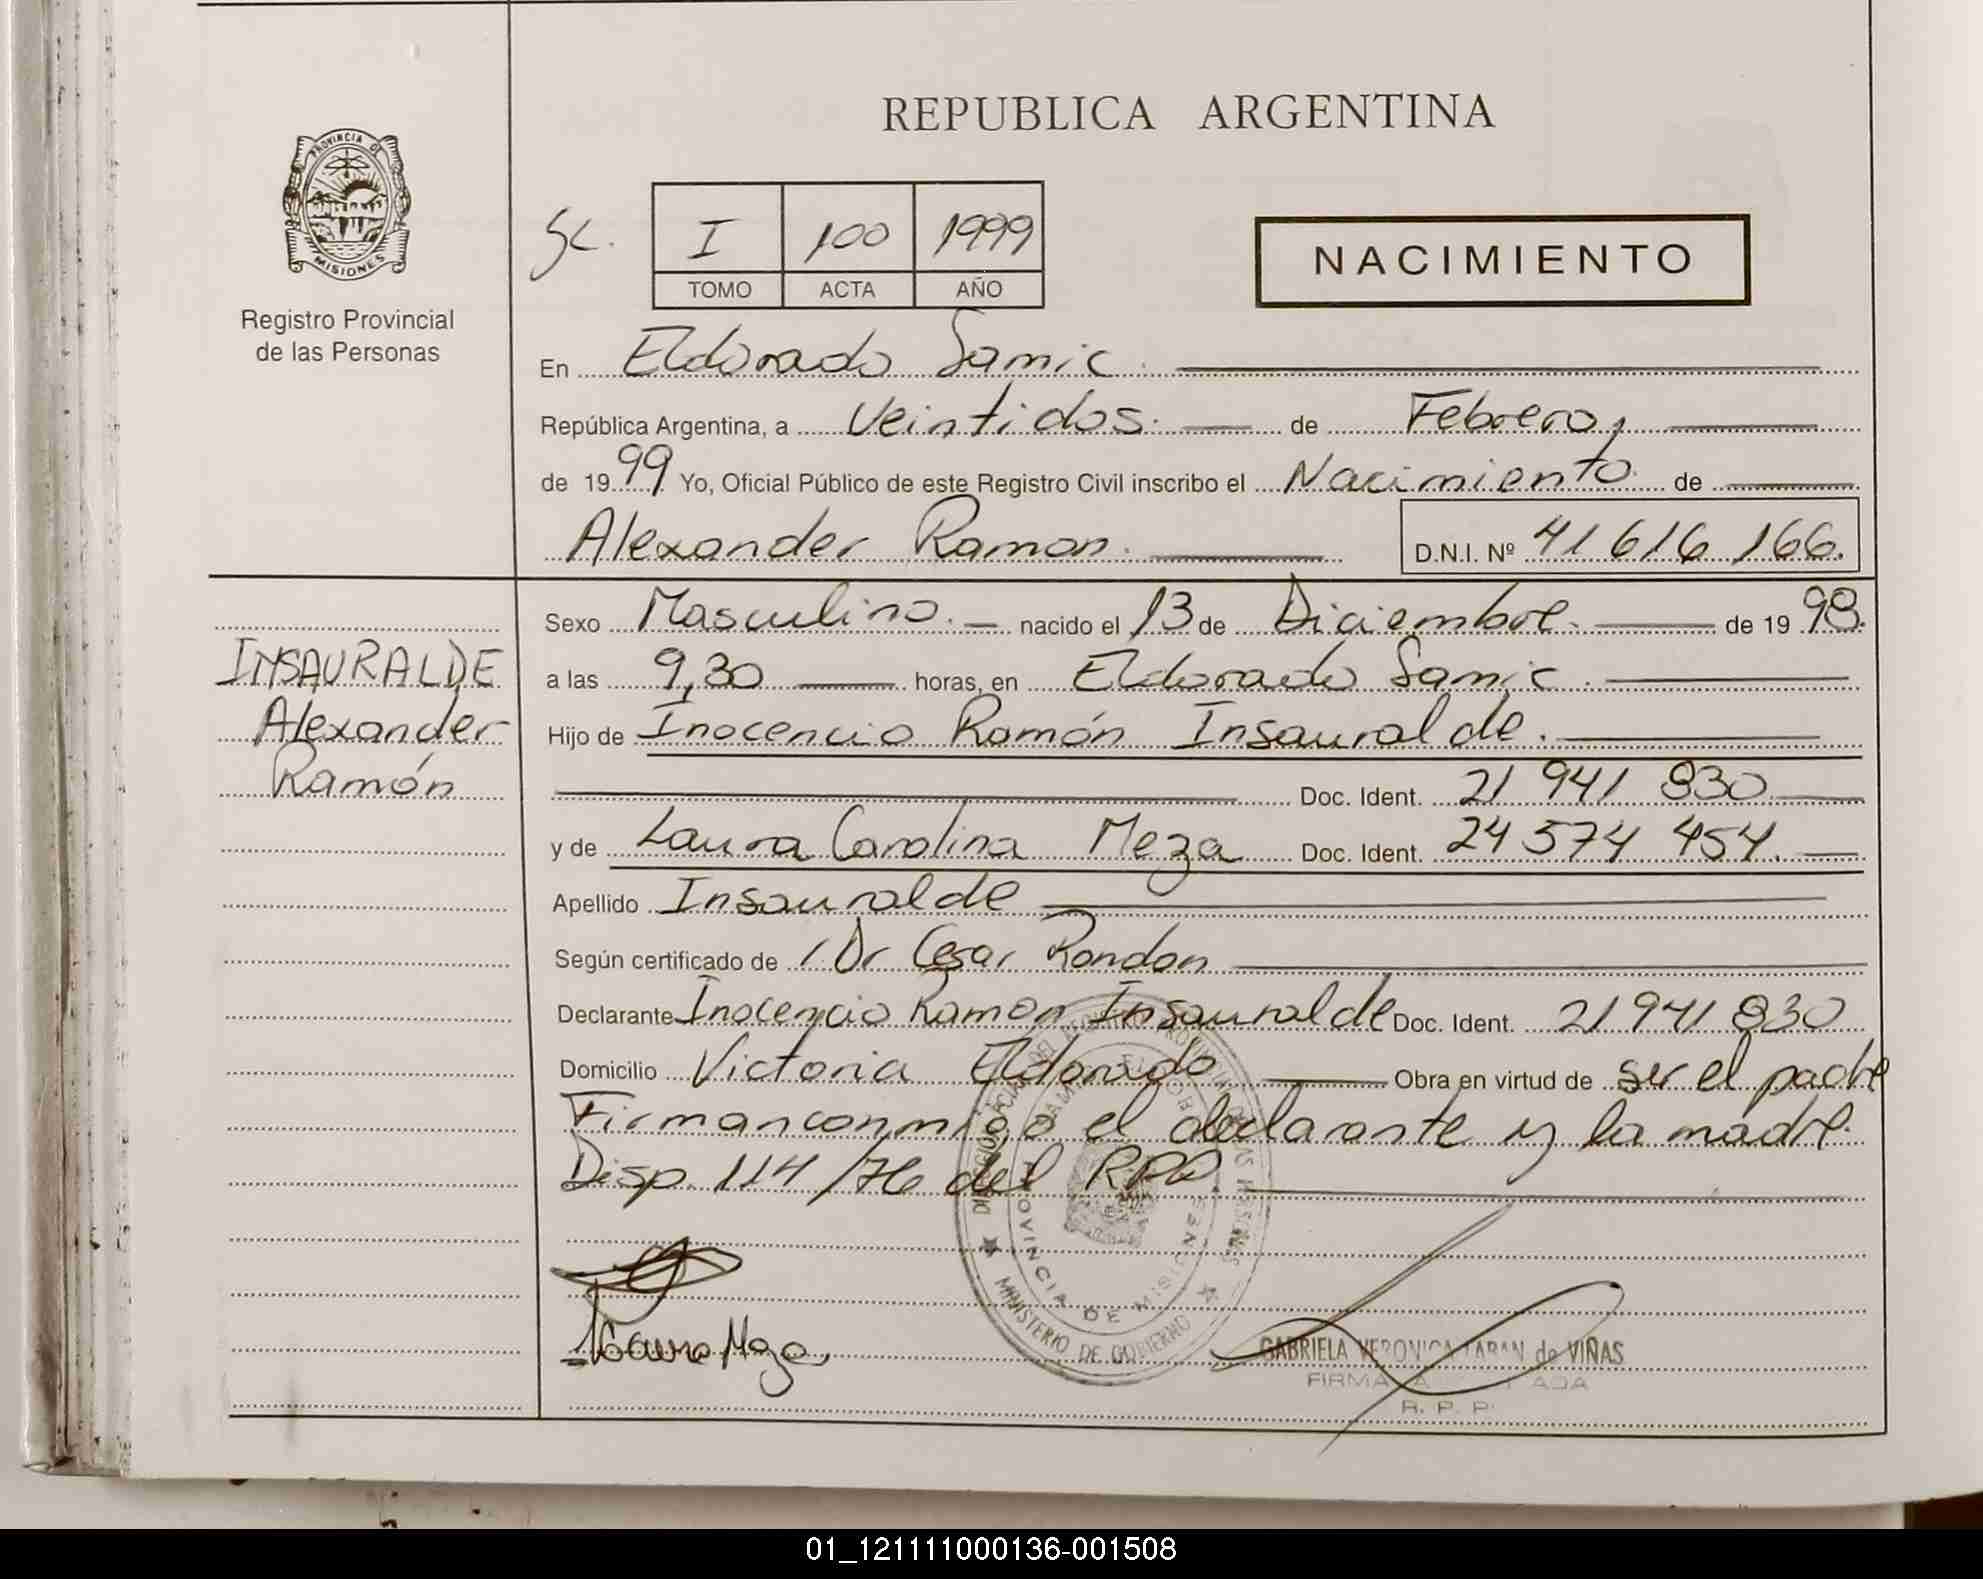 REPUBLICA ARGENTINA
PROVINCIA DE
MISIONES
Registro Provincial
de las Personas
Sc.
I 100 1999
TOMO ACTA AÑO
NACIMIENTO
En Eldorado Samic.
República Argentina, a Veintidos. de Febrero,
de 1999 Yo, Oficial Público de este Registro Civil inscribo el Nacimiento de
Alexander Ramon. D.N.I. Nº 41 616 166.
INSAURALDE
Alexander
Ramón
Sexo Masculino. nacido el 13 de Diciembre. de 1998.
a las 9,30 horas, en Eldorado Samic.
Hijo de Inocencio Ramón Insauralde.
Doc. Ident. 21 941 830
y de Laura Carolina Meza Doc. Ident. 24 574 454.
Apellido Insauralde
Según certificado de Dr Cesar Rondon
Declarante Inocencio Ramon Insauralde Doc. Ident. 21 941 830
Domicilio Victoria Eldorado Obra en virtud de ser el padre
Firman conmigo el declarante y la madre.
Disp. 114/76 del RPP
PROVINCIA DE MISIONES
MINISTERIO DE GOBIERNO
Laura Meza
GABRIELA VERONICA TABAN de VIÑAS
FIRMA
R. P. P.
01_121111000136-001508